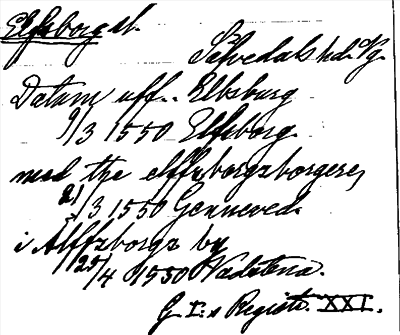 Elfsborgsl.
Sävedals hd. Vg.
Datum uff.. Elbsburg
9/3 1550 Elfsborg.
med the elffzborgzborgere,
21/3 1550 Genneved.
i Älffzborgz by
25/4 1550 Vadstena.
G. I:s Registr. XXI.